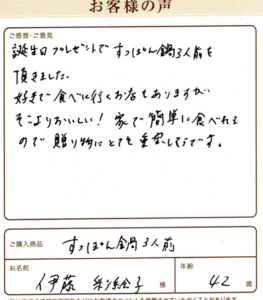 お客様の声
ご感想・ご意見
誕生日プレゼントで すっぽん鍋3人前を
頂きました。
好きで食べに行くお店もありますが
そこよりおいしい! 家で簡単に食べれる
ので 贈り物にとても重宝しそうです。
ご購入商品 すっぽん鍋3人前
お名前 伊藤 様
年齢 42 歳